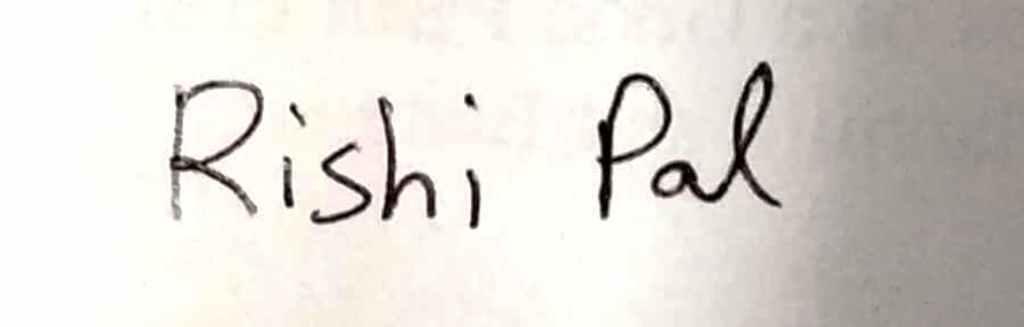 Rishi Pal